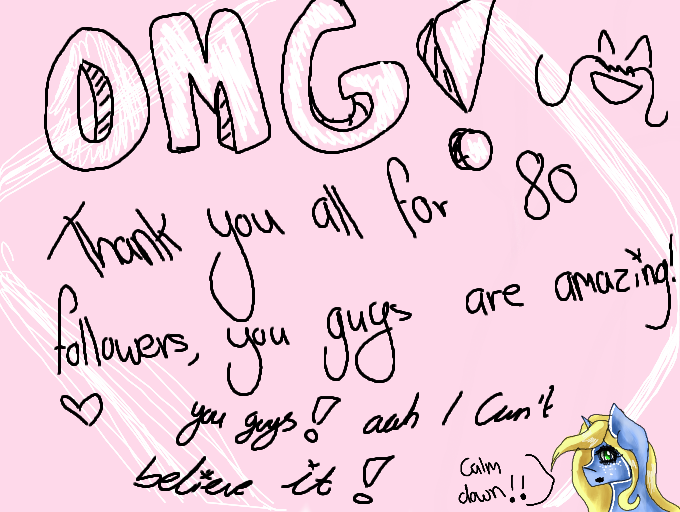 OMG!
Thank you all for 80
followers, you guys are amazing!
you guys! aah I Can't
believe it!
Calm
down!!